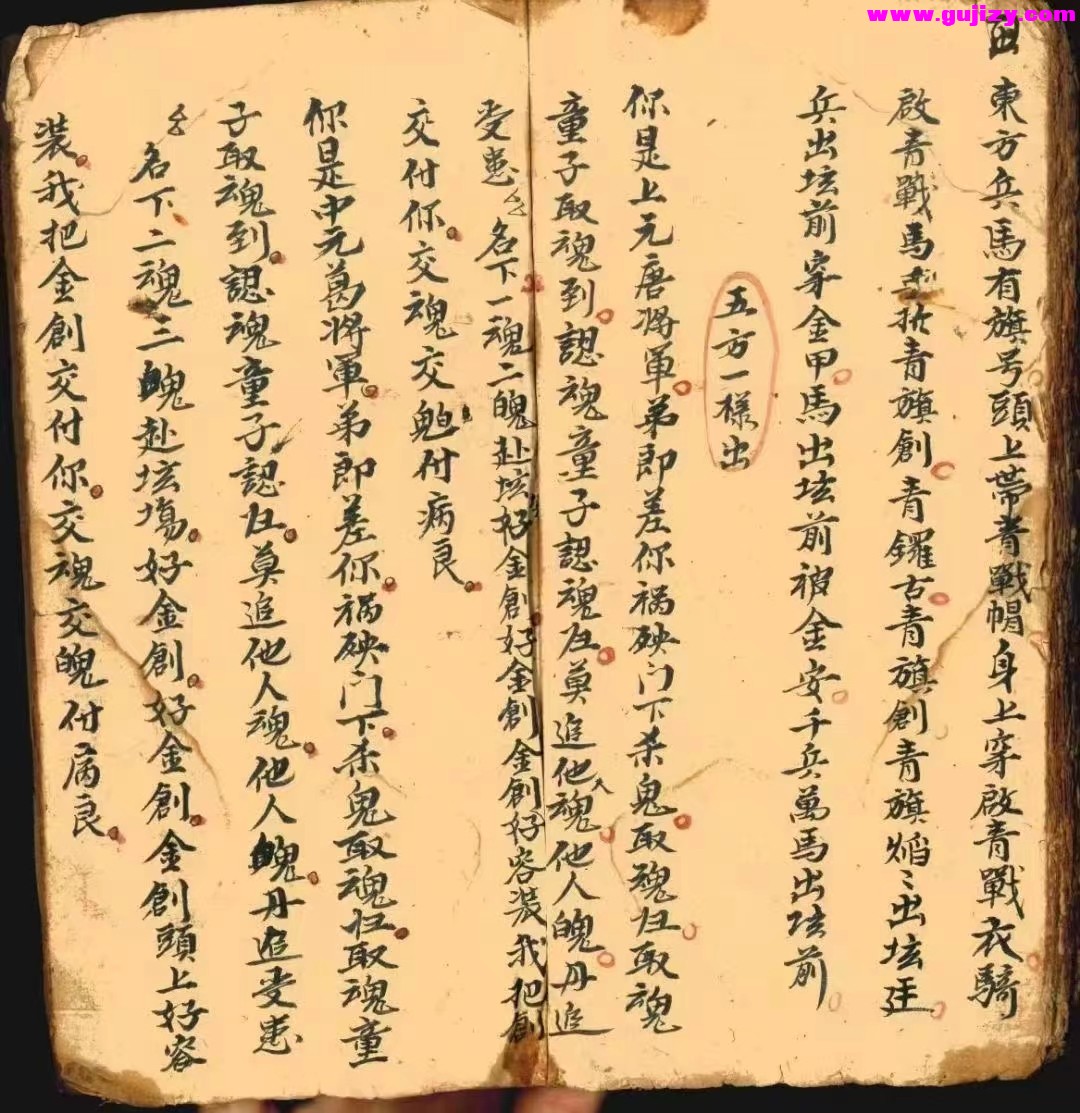 www.gujizy.com
東方兵馬有旗号頭上带青戰帽身上穿啟青戰衣騎
啟青戰馬 青旗創青鑼古青旗創青旗焰〻出坛廷
兵出坛前穿金甲馬出坛前被金安千兵萬馬出坛前
五方一樣出
你是上元唐将軍弟即差你祸殃门下杀鬼取魂归取魂
童子取魂到認魂童子認魂归莫追他人魂他人魄丹追
受患 名下一魂二魄赴坛好金創好金創金創好容裝我把創
交付你交魂交魄付病良
你是中元葛将軍弟即差你祸殃门下杀鬼取魂归取魂童
子取魂到認魂童子認归莫追他人魂他人魄丹追受患
名下二魂三魄赴坛塲好金創好金創金創頭上好容
裝我把金創交付你交魂交魄付病良